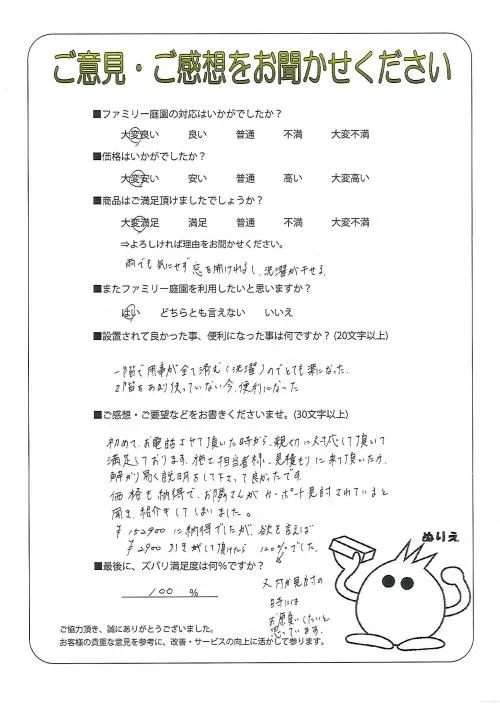 ご意見・ご感想をお聞かせください
■ファミリー庭園の対応はいかがでしたか？
大変良い　良い　普通　不満　大変不満
■価格はいかがでしたか？
大変安い　安い　普通　高い　大変高い
■商品はご満足頂けましたでしょうか？
大変満足　満足　普通　不満　大変不満
⇒よろしければ理由をお聞かせください。
雨でも気にせず窓を開けれるし、洗濯が干せる
■またファミリー庭園を利用したいと思いますか？
はい　どちらとも言えない　いいえ
■設置されて良かった事、便利になった事は何ですか？(20文字以上)
一階で用事が全て済む(洗濯)のでとても楽になった。
2階をあまり使っていない今、便利になった
■ご感想・ご要望などをお書きくださいませ。(30文字以上)
初めて、お電話させて頂いた時から、親切に対応して頂いて
満足しております。施工担当者様、見積もりに来て頂いた方、
解かり易く説明をして下さって良かったです。
価格も納得で、お隣さんがカーポート見討されていると
聞き、紹介をしてしまいました。
¥152900に納得でしたが、欲を言えば
¥2900引きがして頂けたら120%でした。
■最後に、ズバリ満足度は何%ですか？
100 %
又何か見討の
時には
お願いしたいと
思っています。
ぬりえ
ご協力頂き、誠にありがとうございました。
お客様の貴重な意見を参考に、改善・サービスの向上に活かして参ります。